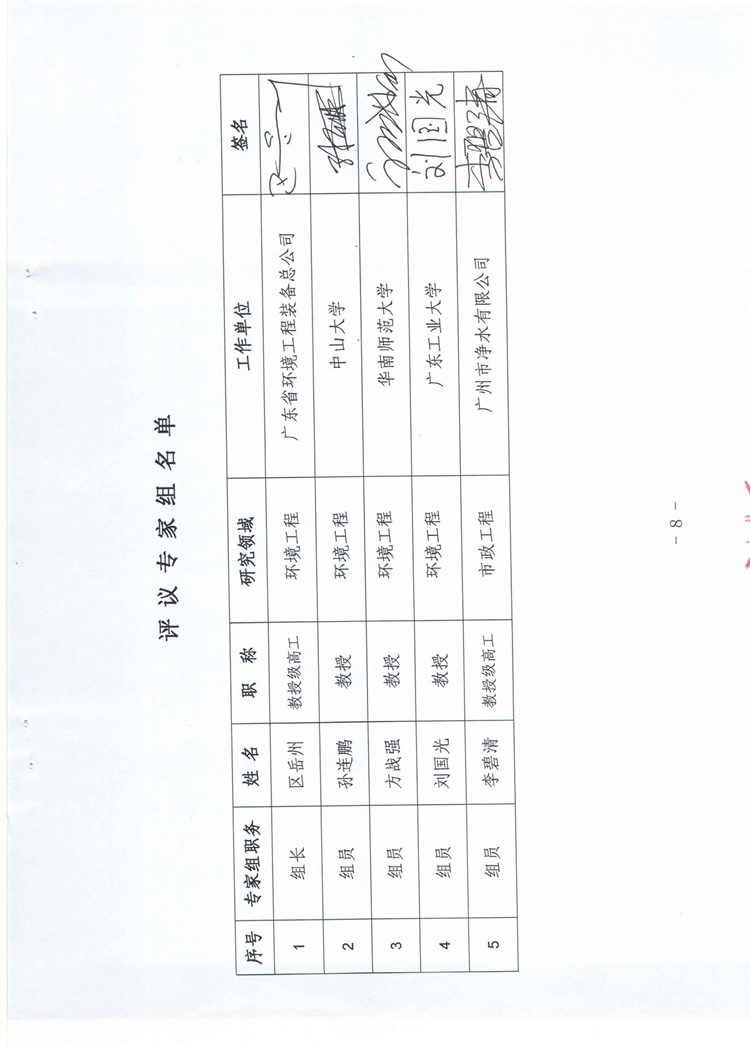 评议专家组名单
序号 专家组职务 姓名 职称 研究领域 工作单位 签名
1 组长 区岳州 教授级高工 环境工程 广东省环境工程装备总公司
2 组员 孙连鹏 教授 环境工程 中山大学
3 组员 方战强 教授 环境工程 华南师范大学
4 组员 刘国光 教授 环境工程 广东工业大学 刘国光
5 组员 李碧清 教授级高工 市政工程 广州市净水有限公司 李碧清
- 8 -